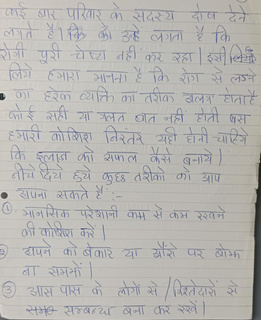 कई बार परिवार के सदस्य दोष देने
लगते हैं। कि को उन्हें लगता है कि
रोगी पूरी चेष्टा नहीं कर रहा। इसी
लिये हमारा मानना है कि रोग से लड़ने
का हरेक व्यक्ति का तरीका अलग होता है
कोई सही या गलत बात नहीं होती बस
हमारी कोशिश निरंतर यही होनी चाहिये
कि इलाज को सफल कैसे बनाये।
नीचे दिये हुये कुछ तरीको को आप
अपना सकते हैं :-
① मानसिक परेशानी कम से कम रखने
की कोशिश करें।
② अपने को बेकार या औरों पर बोझ
ना समझें।
③ आस पास के लोगो से / रिश्तेदारों से
सम्बन्ध बना कर रखें।